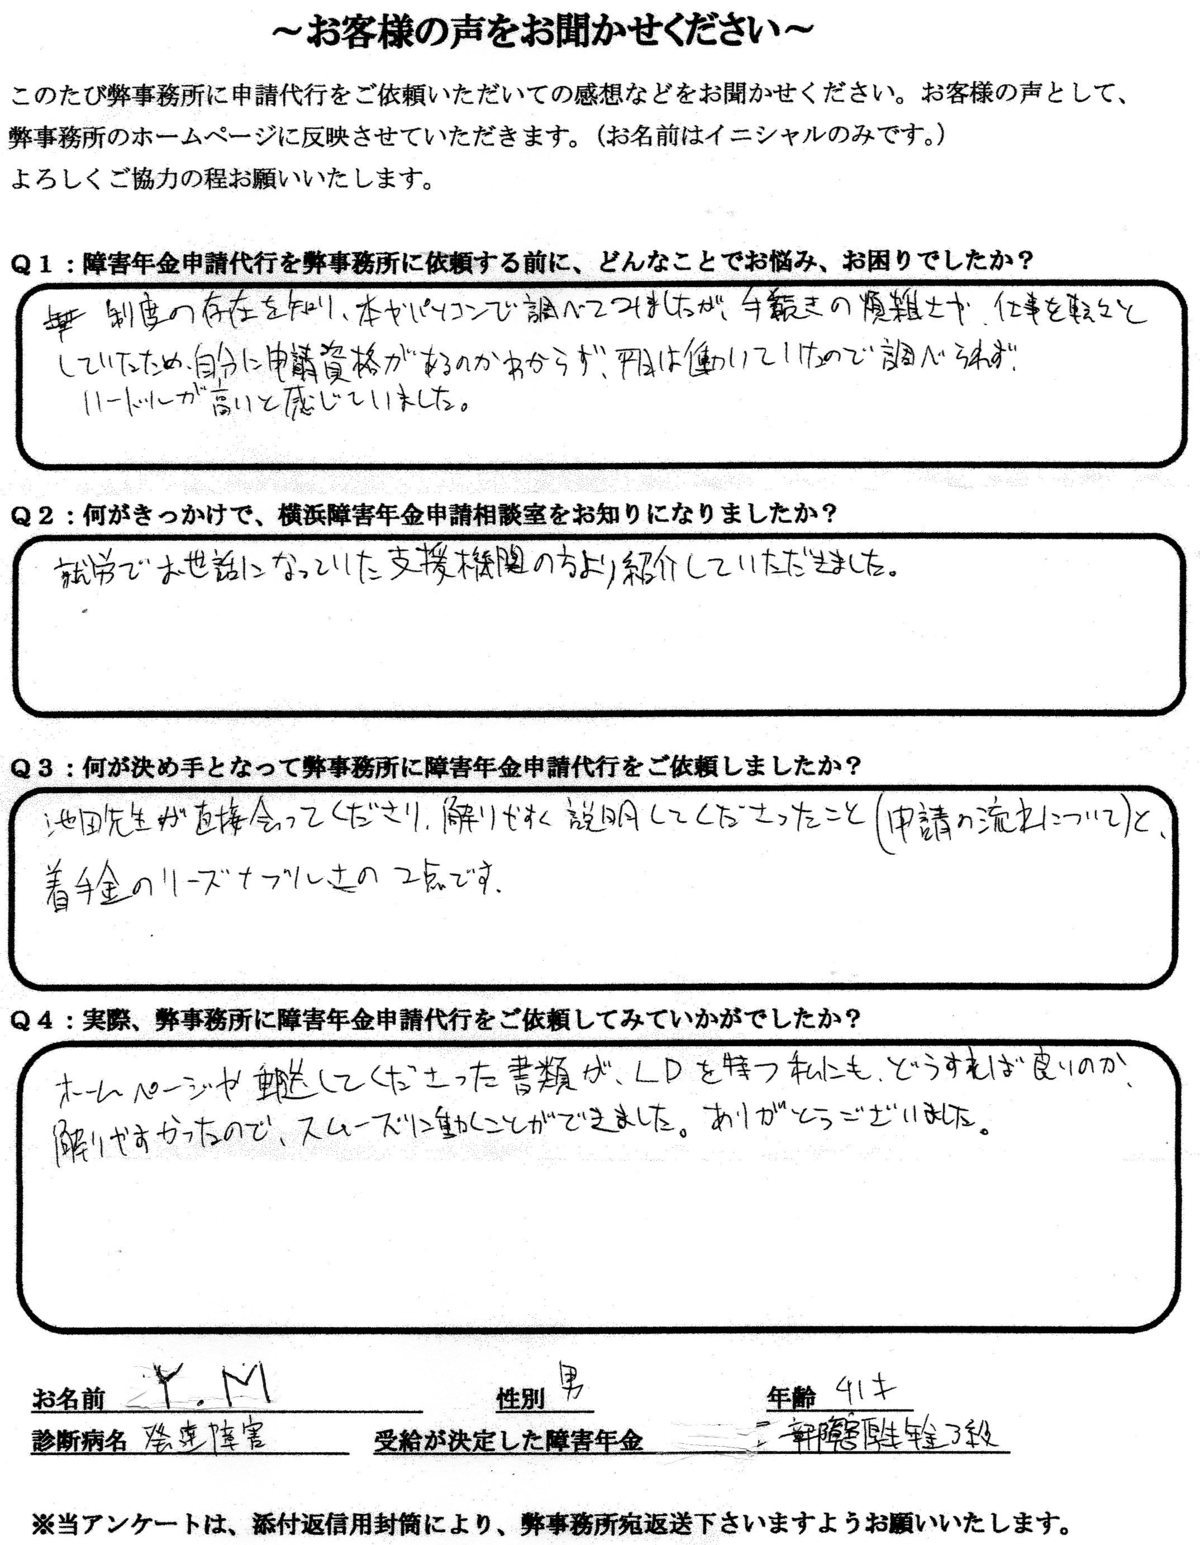 ～お客様の声をお聞かせください～
このたび弊事務所に申請代行をご依頼いただいての感想などをお聞かせください。お客様の声として、
弊事務所のホームページに反映させていただきます。（お名前はイニシャルのみです。）
よろしくご協力の程お願いいたします。
Ｑ１：障害年金申請代行を弊事務所に依頼する前に、どんなことでお悩み、お困りでしたか？
制度の存在を知り、本やパソコンで調べてつけましたが、手続きの煩雑さや、仕事を転々と
していたため、自分に申請資格があるのかわからず、平日は働いていたので調べられず、
ハードルが高いと感じていました。
Ｑ２：何がきっかけで、横浜障害年金申請相談室をお知りになりましたか？
就労でお世話になっていた支援機関の方より紹介していただきました。
Ｑ３：何が決め手となって弊事務所に障害年金申請代行をご依頼しましたか？
池田先生が直接会ってくださり、解りやすく説明してくださったこと(申請の流れについて)と、
着手金のリーズナブルさの2点です。
Ｑ４：実際、弊事務所に障害年金申請代行をご依頼してみていかがでしたか？
ホームページや郵送してくださった書類が、LDを持つ私にも、どうすれば良いのか、
解りやすかったので、スムーズに動くことができました。ありがとうございました。
お名前 Y.M 性別 男 年齢 41才
診断病名 発達障害 受給が決定した障害年金 障害厚生年金3級
※当アンケートは、添付返信用封筒により、弊事務所宛返送下さいますようお願いいたします。